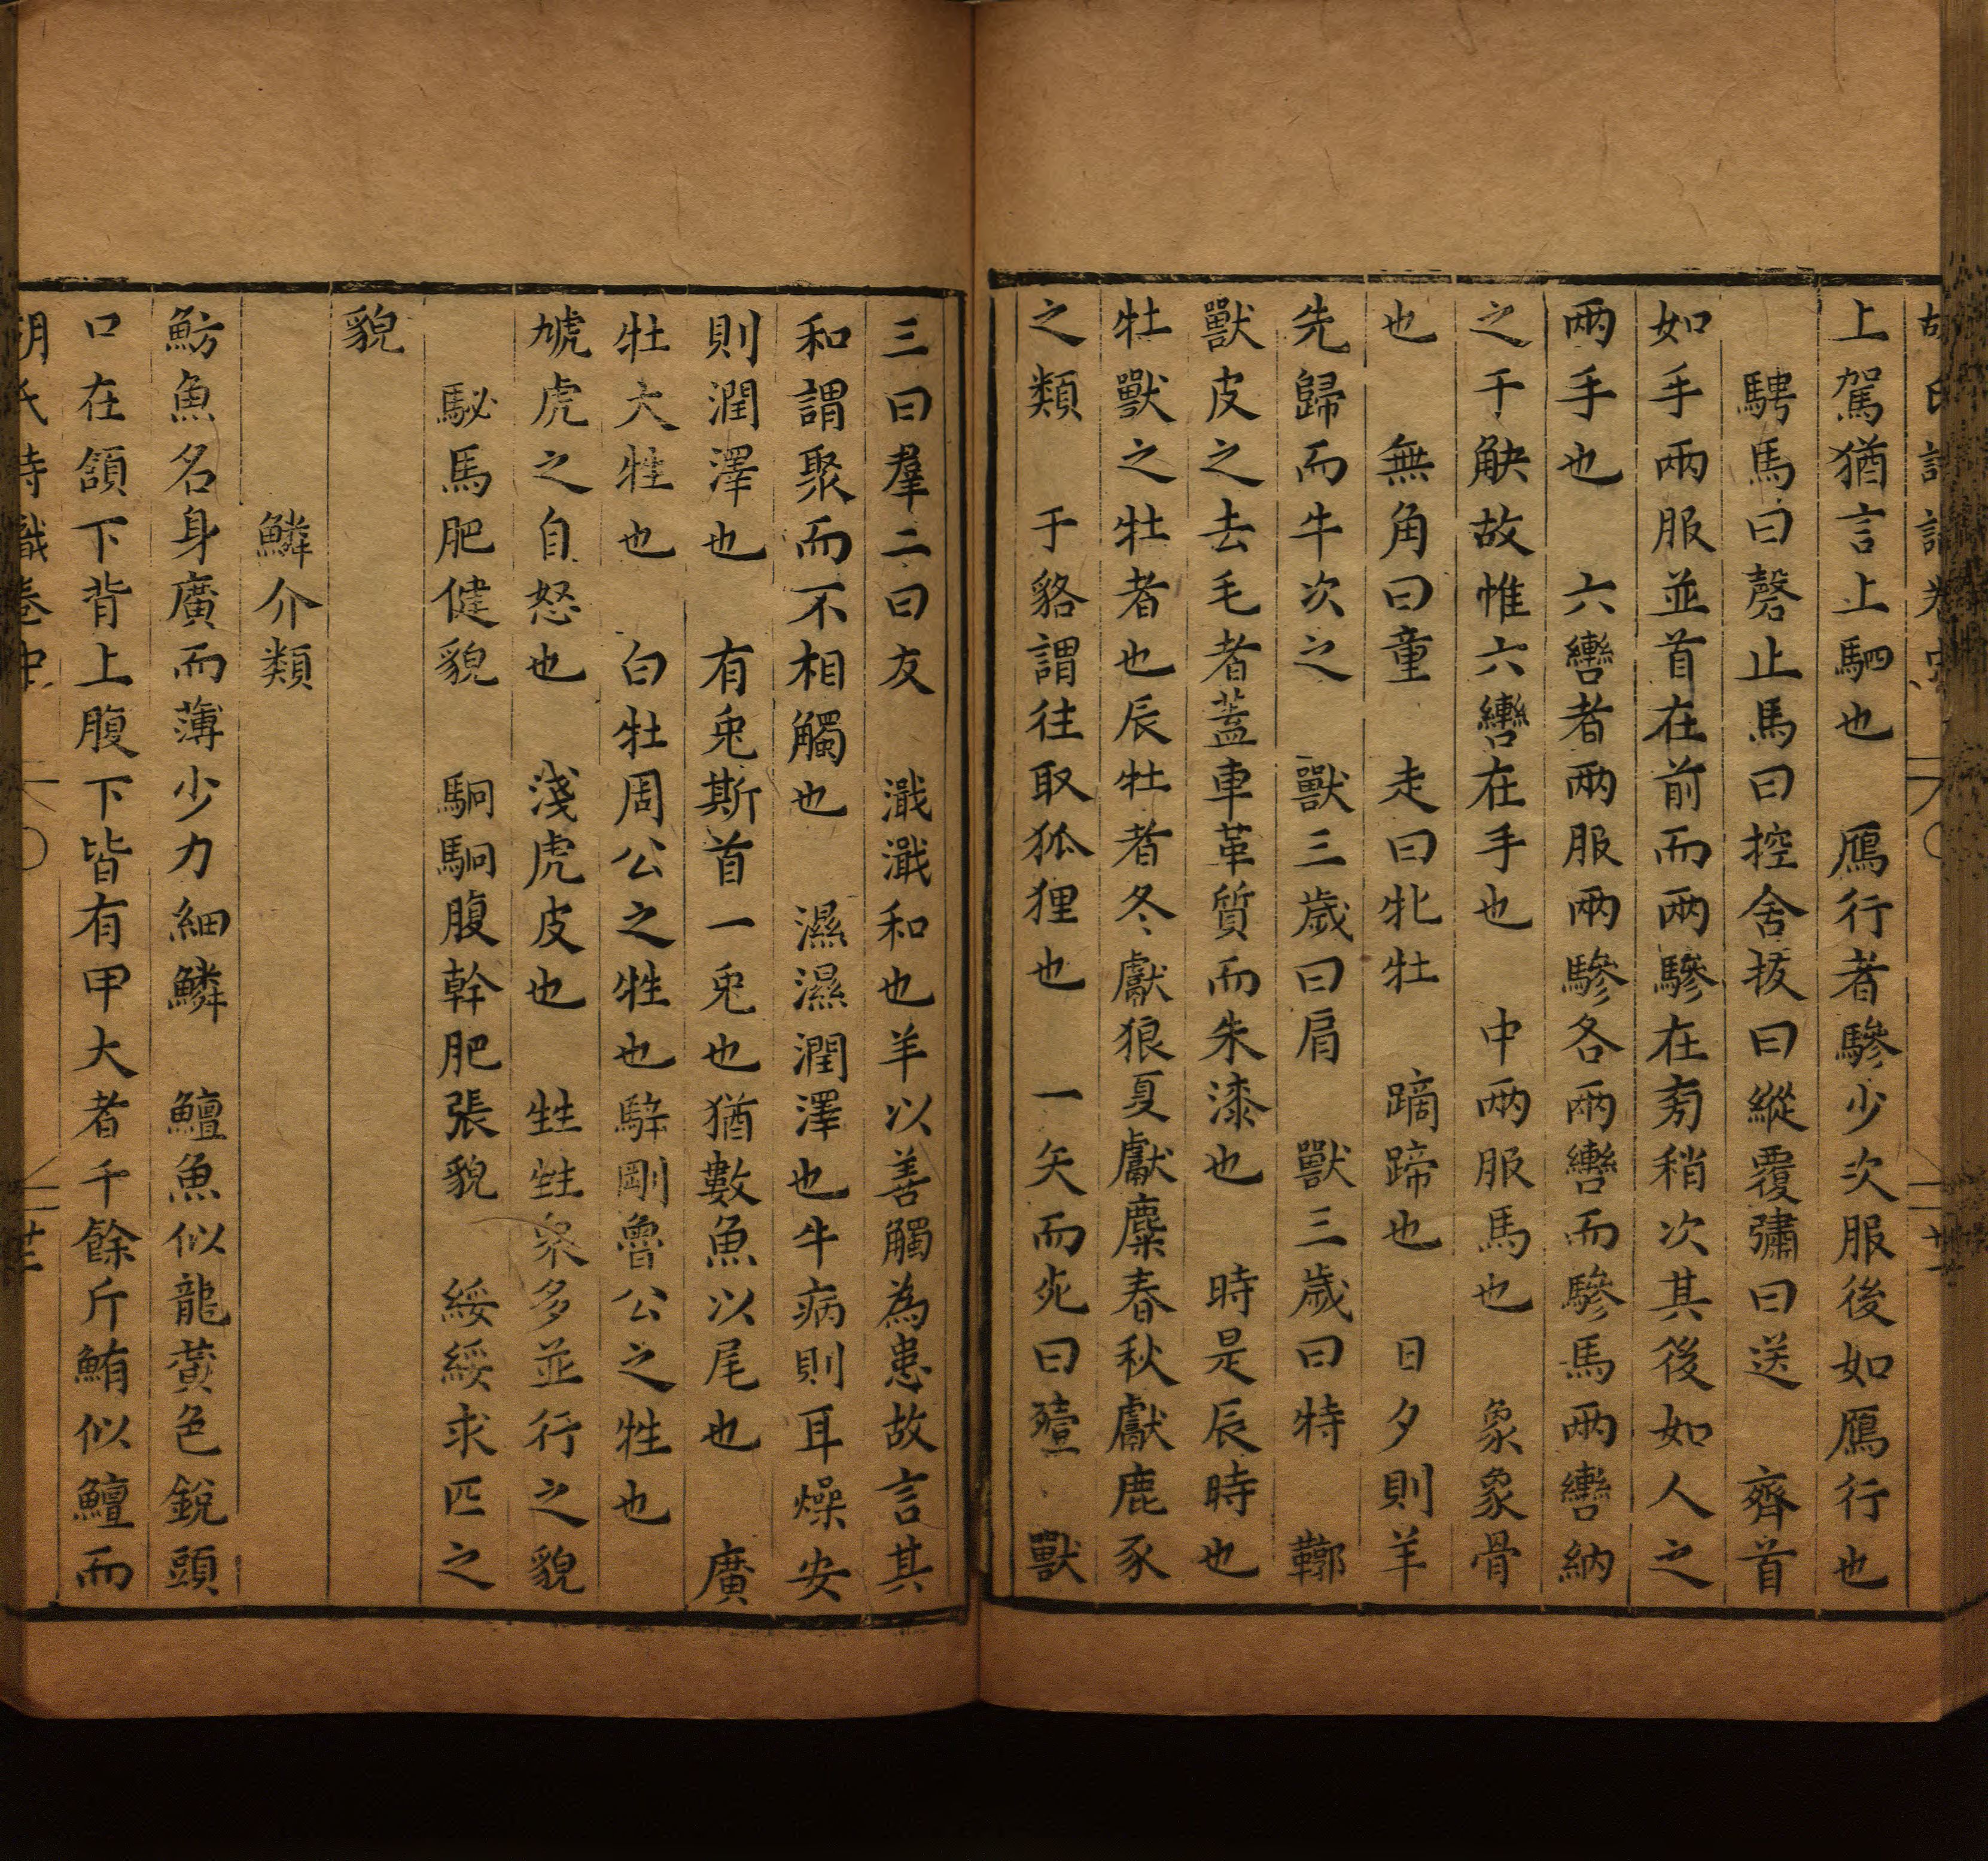 上駕猶言上駟也　鴈行者驂少次服後如鴈行也
騁馬曰磬止馬曰控舍拔曰縱覆彇曰送　齊首
如手兩服並首在前而兩驂在旁稍次其後如人之
兩手也　六轡者兩服兩驂各兩轡而驂馬兩轡納
之于觖故惟六轡在手也　中兩服馬也　象象骨
也　無角曰童　走曰牝牡　蹢蹄也　日夕則羊
先歸而牛次之　獸三歲曰肩　獸三歲曰特　鞹
獸皮之去毛者蓋車革質而朱漆也　時是辰時也
牡獸之牡者也辰牡者冬獻狼夏獻麋春秋獻鹿豕
之類　于貉謂往取狐狸也　一矢而死曰殪　獸
三曰羣二曰友　濈濈和也羊以善觸為患故言其
和謂聚而不相觸也　濕濕潤澤也牛病則耳燥安
則潤澤也　有兔斯首一兔也猶數魚以尾也　廣
牡大牲也　白牡周公之牲也騂剛魯公之牲也
虓虎之自怒也　淺虎皮也　甡甡眾多並行之貌
駜馬肥健貌　駉駉腹幹肥張貌　綏綏求匹之
貌
鱗介類
魴魚名身廣而薄少力細鱗　鱣魚似龍黃色銳頭
口在頷下背上腹下皆有甲大者千餘斤鮪似鱣而